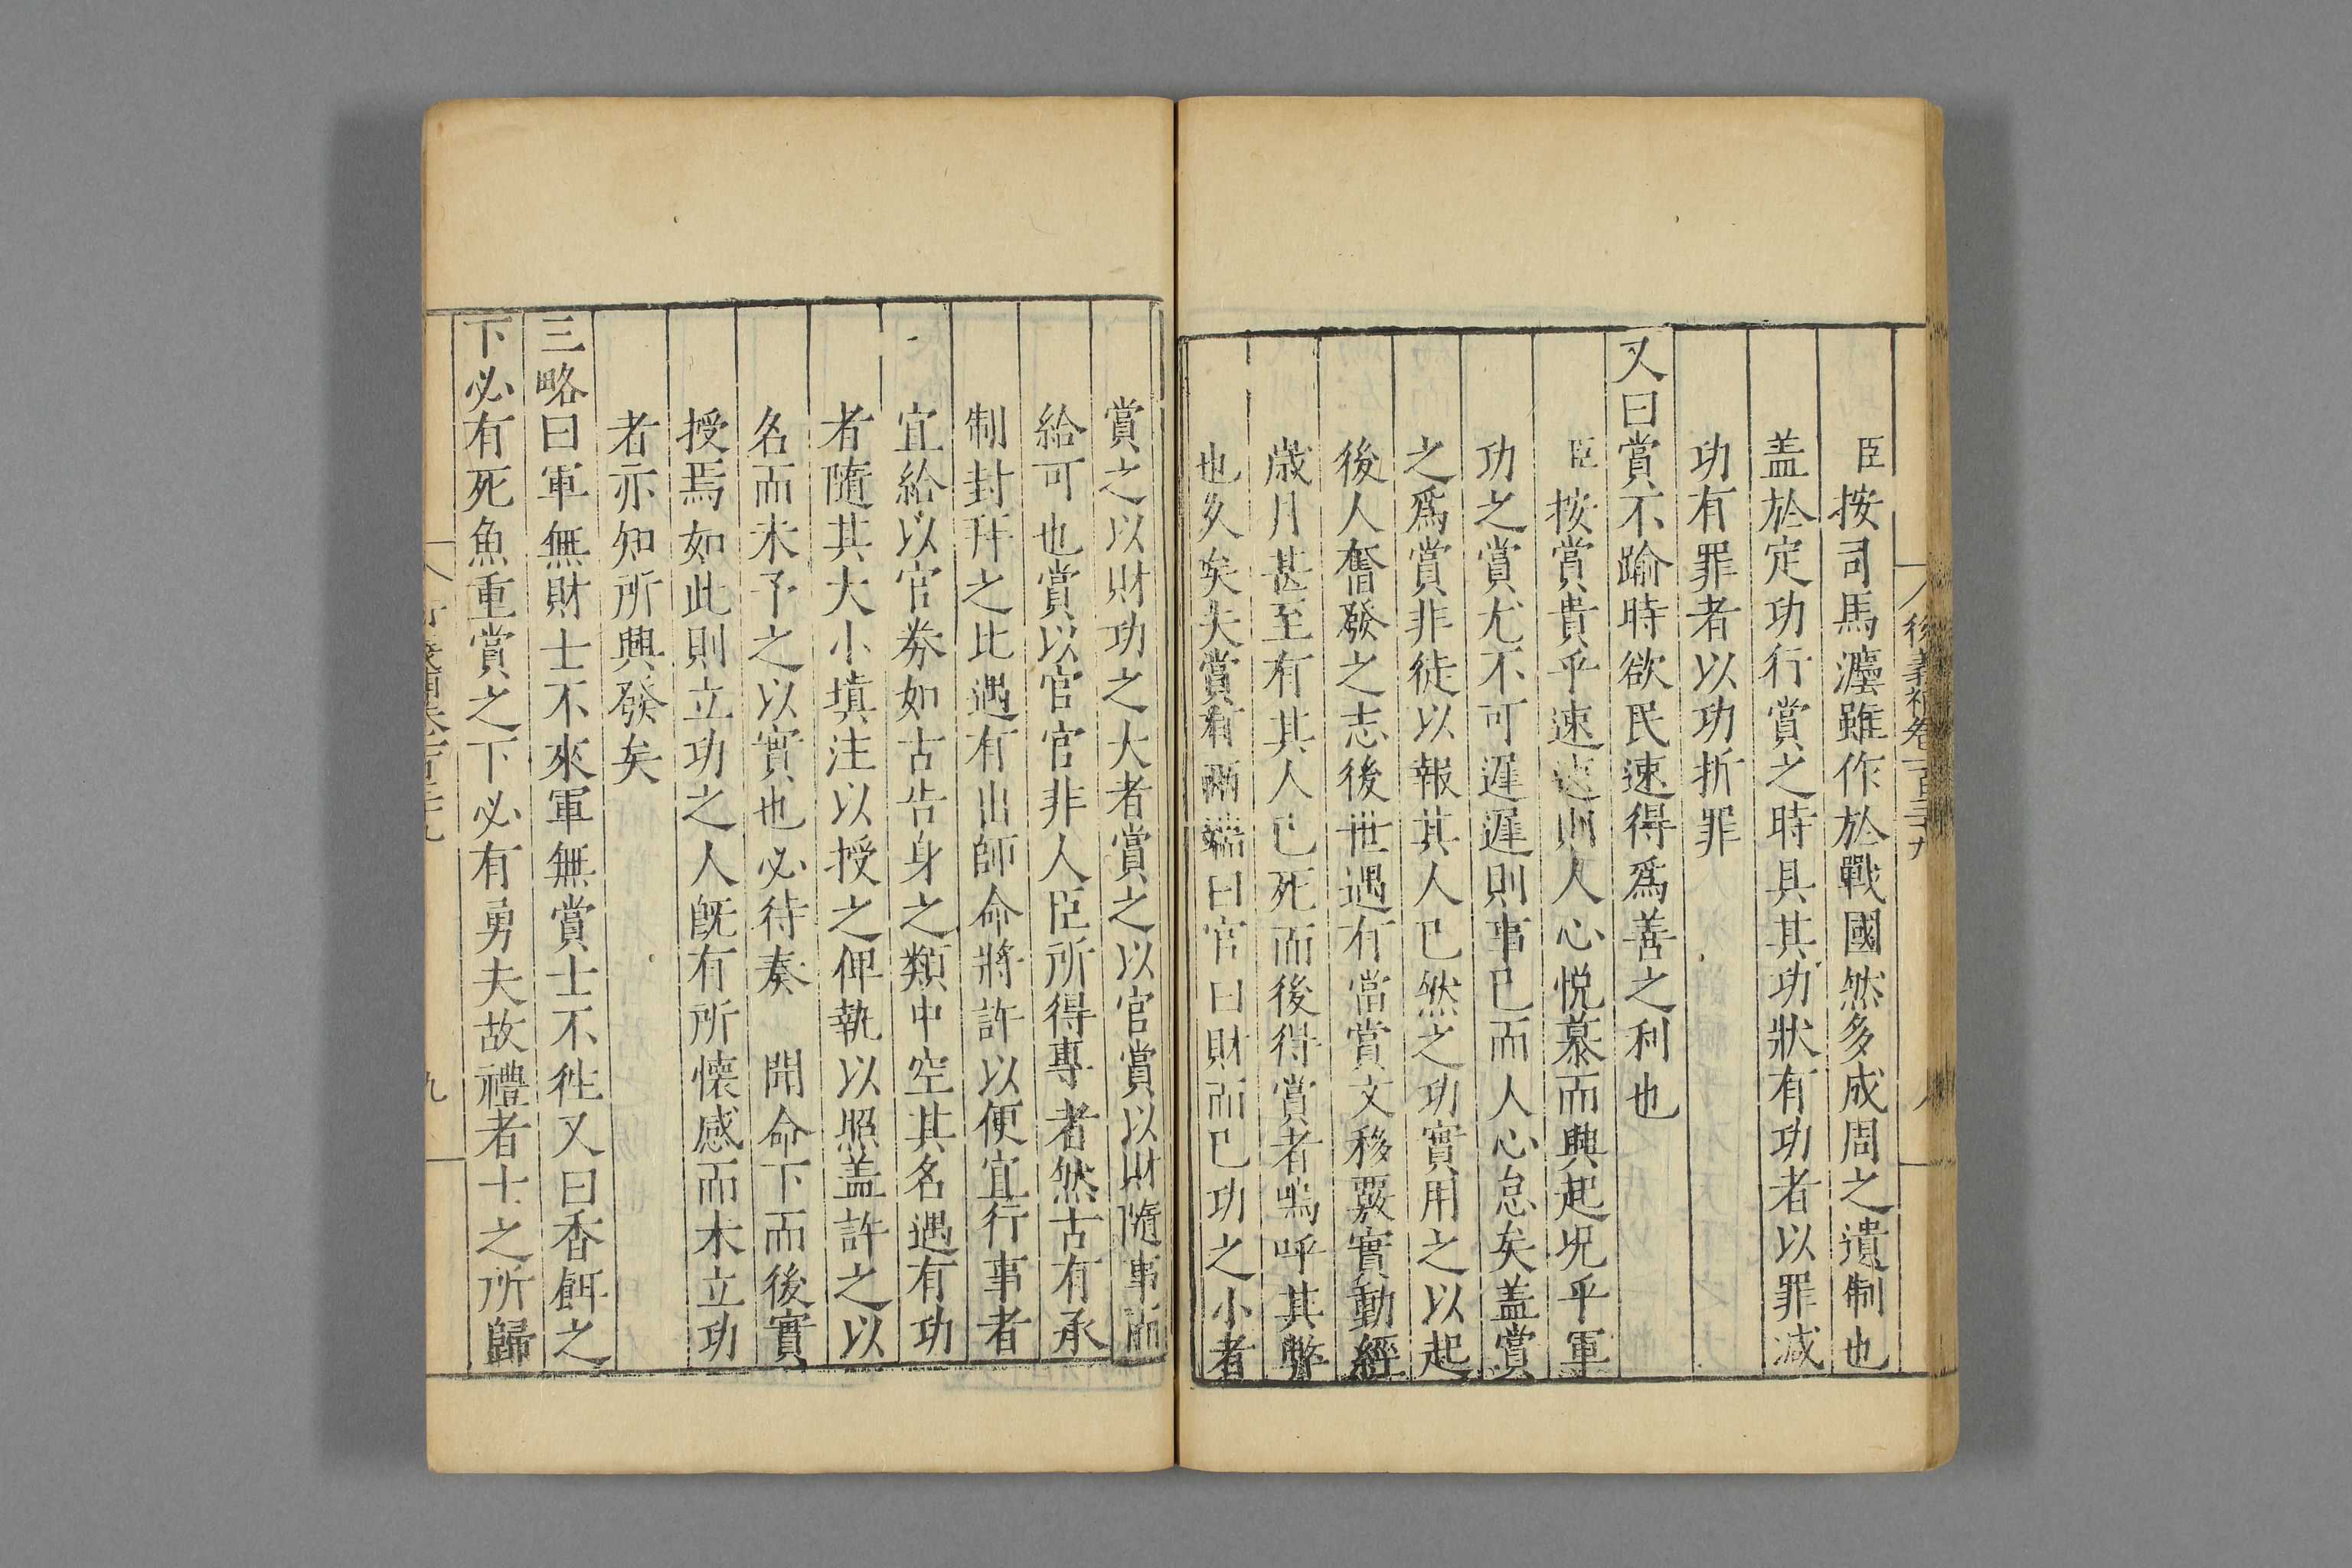 後義補卷一百三十九
臣按司馬灋雖作於戰國然多成周之遺制也
盖於定功行賞之時具其功狀有功者以罪减
功有罪者以功折罪
又曰賞不踰時欲民速得爲善之利也
臣按賞貴乎速速則人心悅慕而興起況乎軍
功之賞尤不可遲遲則事已而人心怠矣盖賞
之爲賞非徒以報其人已然之功實用之以起
後人奮發之志後世遇有當賞文移覈實動經
歳月甚至有其人已死而後得賞者嗚呼其弊
也久矣夫賞有兩端曰官曰財而已功之小者
賞之以財功之大者賞之以官賞以財隨事而
給可也賞以官官非人臣所得專者然古有承
制封拜之比遇有出師命將許以便宜行事者
宜給以官劵如古告身之類中空其名遇有功
者隨其大小塡注以授之俾執以照盖許之以
名而未予之以實也必待奏 聞命下而後實
授焉如此則立功之人旣有所懐感而未立功
者亦知所興發矣
三略曰軍無財士不來軍無賞士不徃又曰香餌之
下必有死魚重賞之下必有勇夫故禮者士之所歸
九